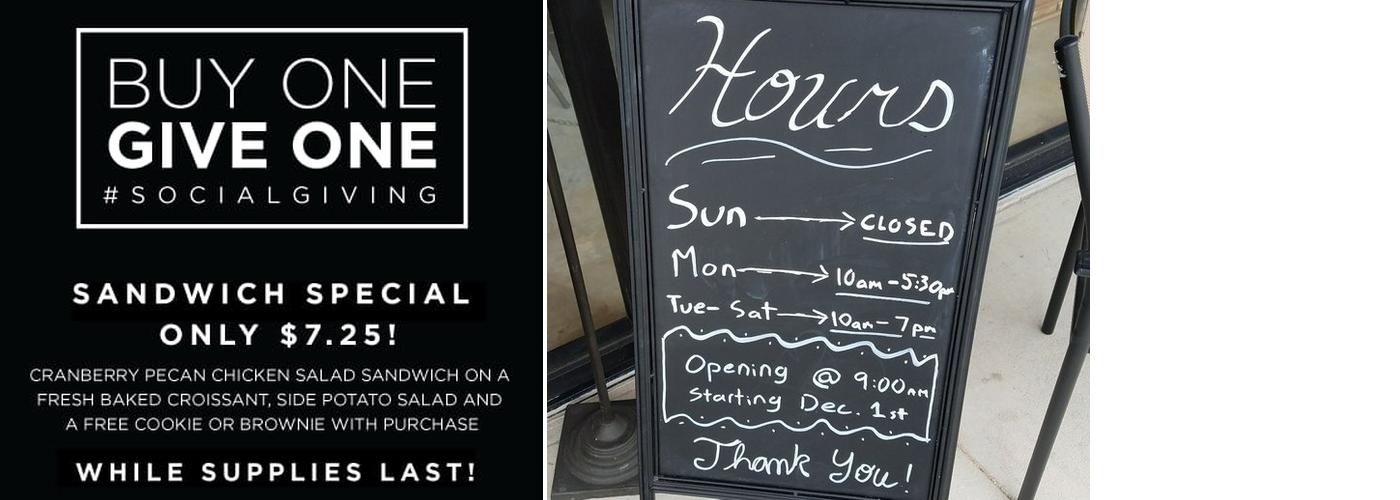 BUY ONE
GIVE ONE
#SOCIALGIVING
SANDWICH SPECIAL
ONLY $7.25!
CRANBERRY PECAN CHICKEN SALAD SANDWICH ON A
FRESH BAKED CROISSANT, SIDE POTATO SALAD AND
A FREE COOKIE OR BROWNIE WITH PURCHASE
WHILE SUPPLIES LAST!
Hours
Sun → CLOSED
Mon → 10am-5:30pm
Tue- Sat → 10am- 7pm
Opening @ 9:00AM
starting Dec. 1st
Thank You!